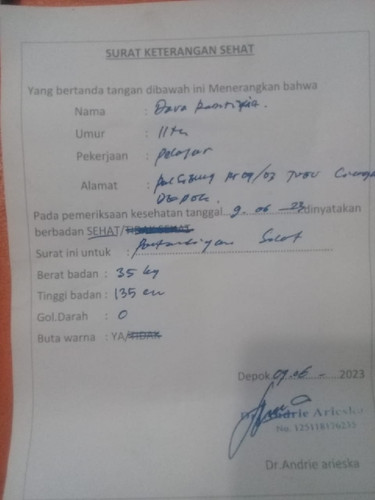 SURAT KETERANGAN SEHAT
Yang bertanda tangan dibawah ini Menerangkan bahwa
Nama : Dava
Umur : 11 th
Pekerjaan : pelajar
Alamat :
Depok.
Pada pemeriksaan kesehatan tanggal 9 - 06 - 23 dinyatakan
berbadan SEHAT/TIDAK SEHAT
Surat ini untuk :
Berat badan : 35 kg
Tinggi badan : 135 cm
Gol.Darah : O
Buta warna : YA/TIDAK
Depok, 09.06 - 2023
Dr. Andrie Arieska
No. 125118176235
Dr.Andrie arieska